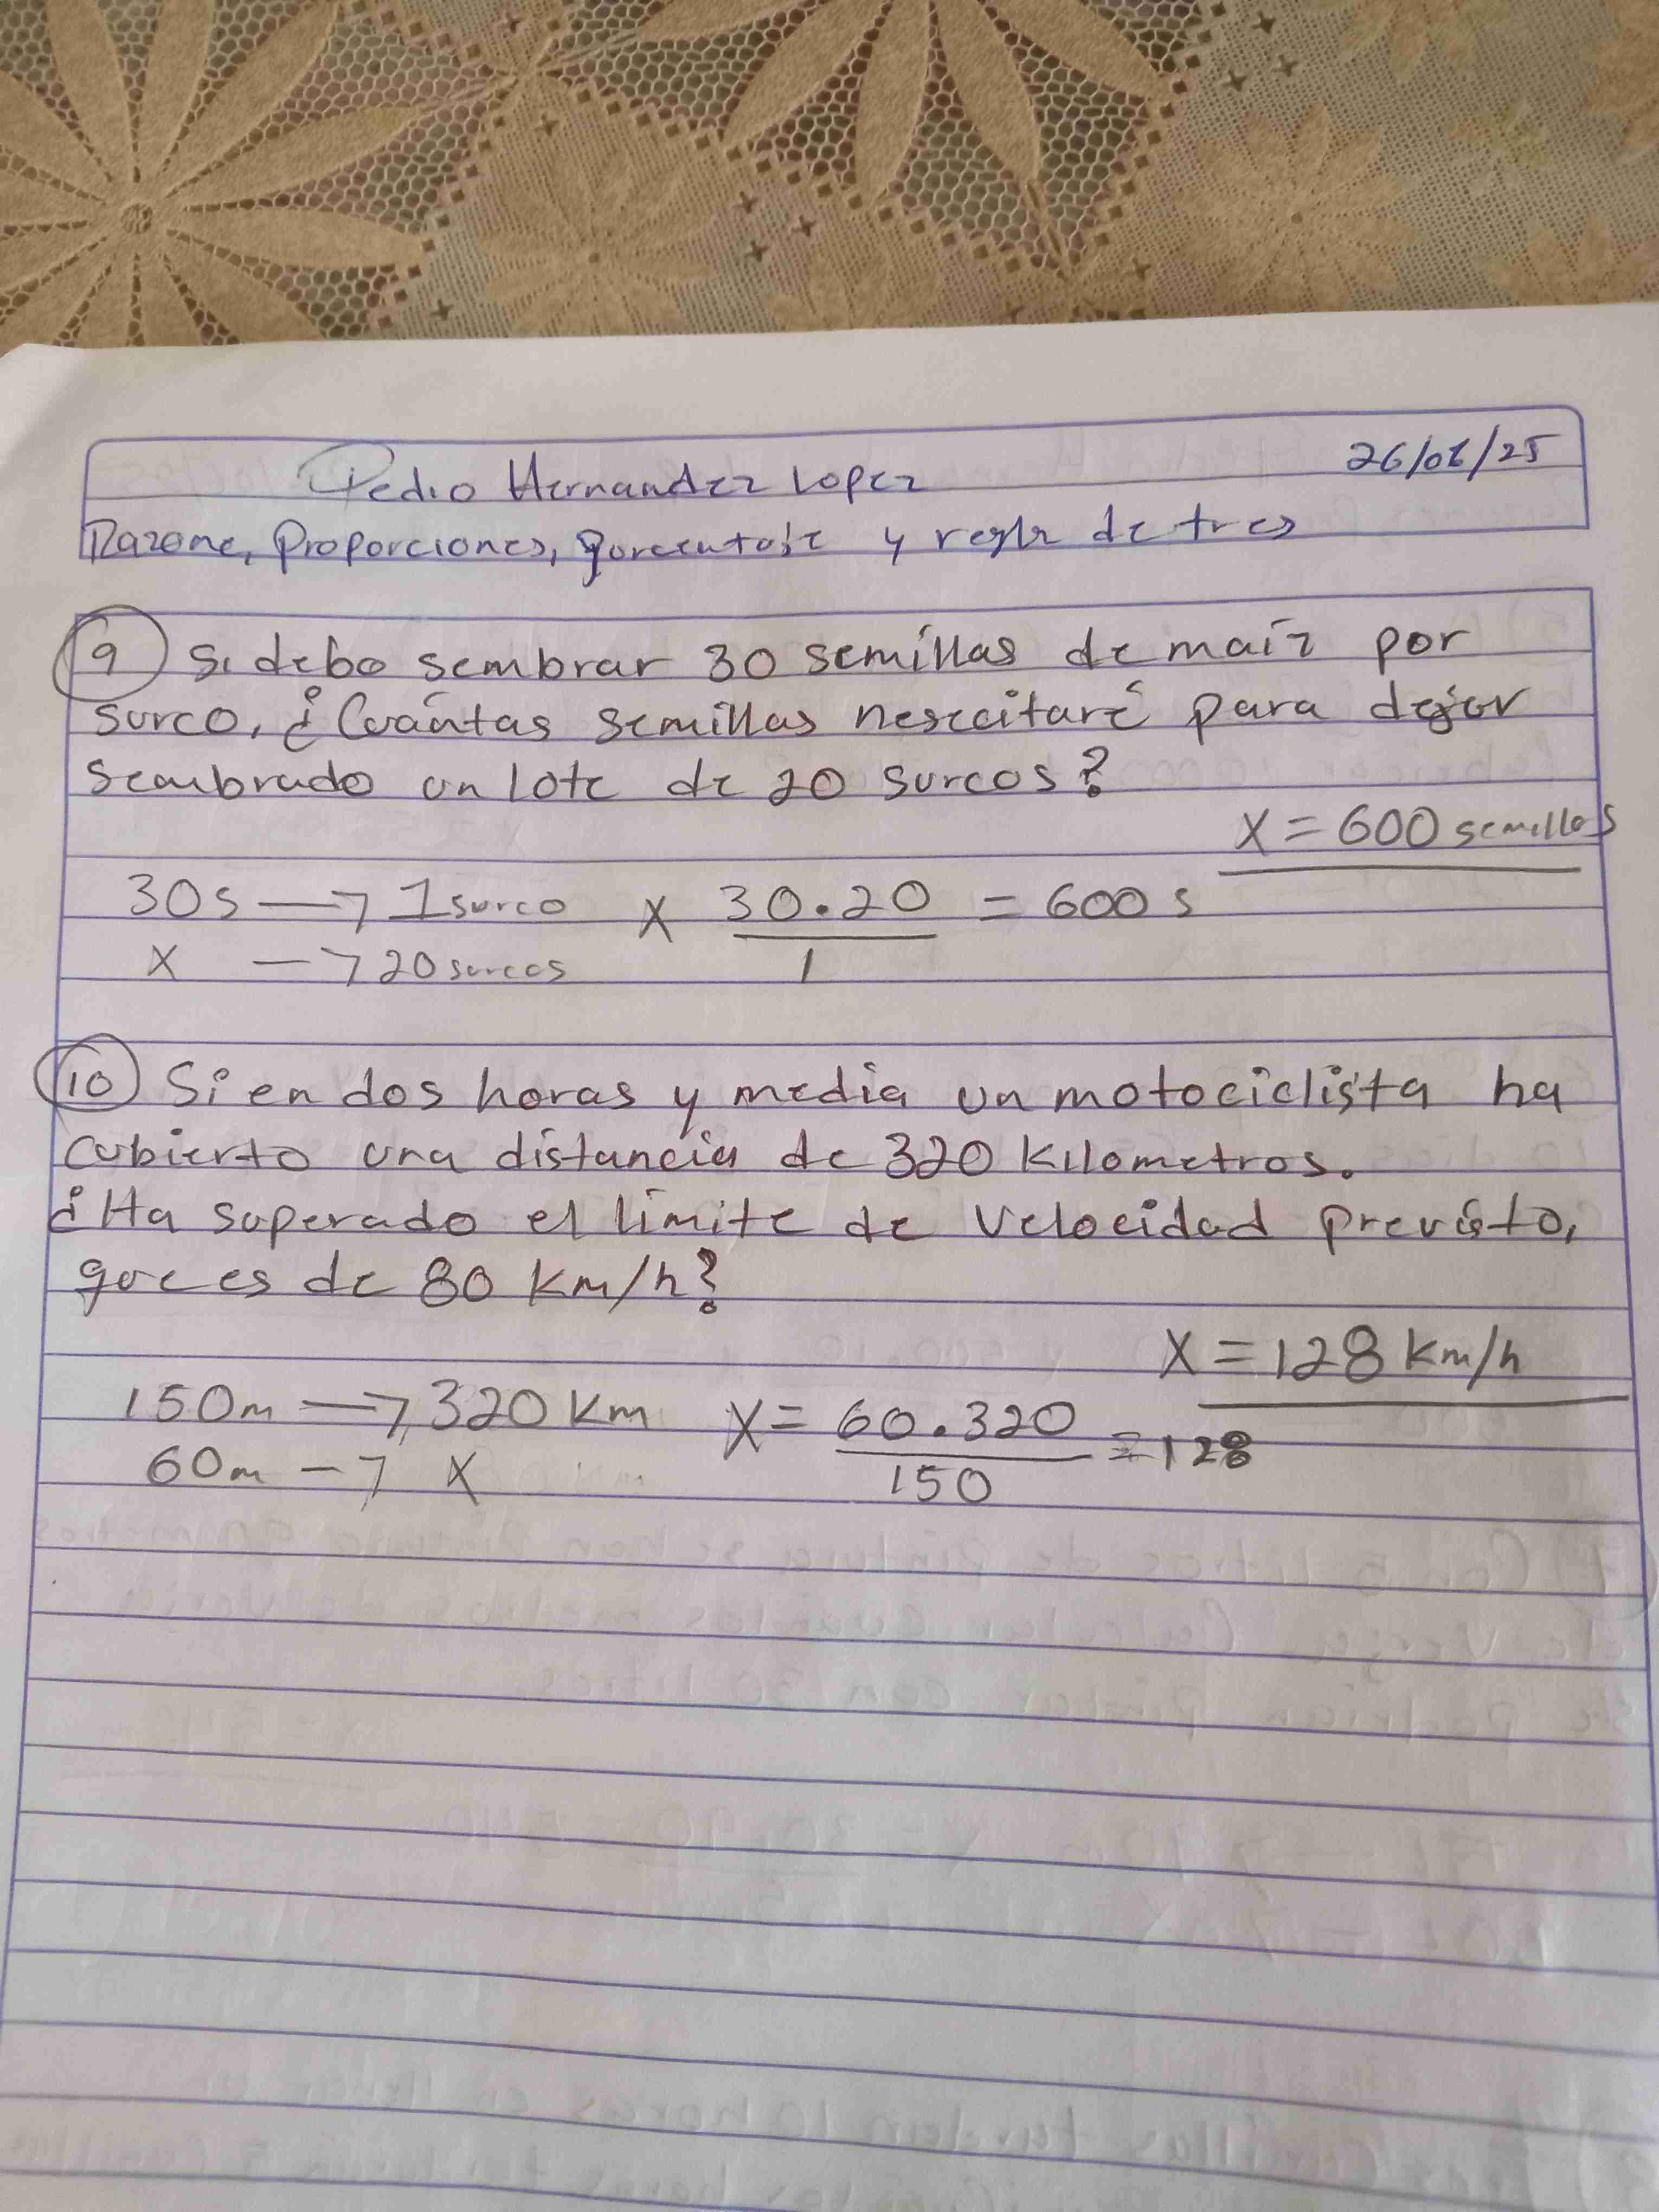 Pedro Hernandez Lopez 26/06/25
Razone, Proporciones, porcentaje y regla de tres
9 Si debo sembrar 30 semillas de maíz por
surco, ¿Cuántas semillas nesecitaré para dejar
sembrado un lote de 20 surcos?
X = 600 semillas
30s → 1 surco X 30.20 = 600 s
X → 20 surcos 1
10 Si en dos horas y media un motociclista ha
cubierto una distancia de 320 Kilometros.
¿Ha superado el límite de velocidad previsto,
que es de 80 Km/h?
X = 128 Km/h
150m → 320 Km X = 60.320 = 128
60m → X 150